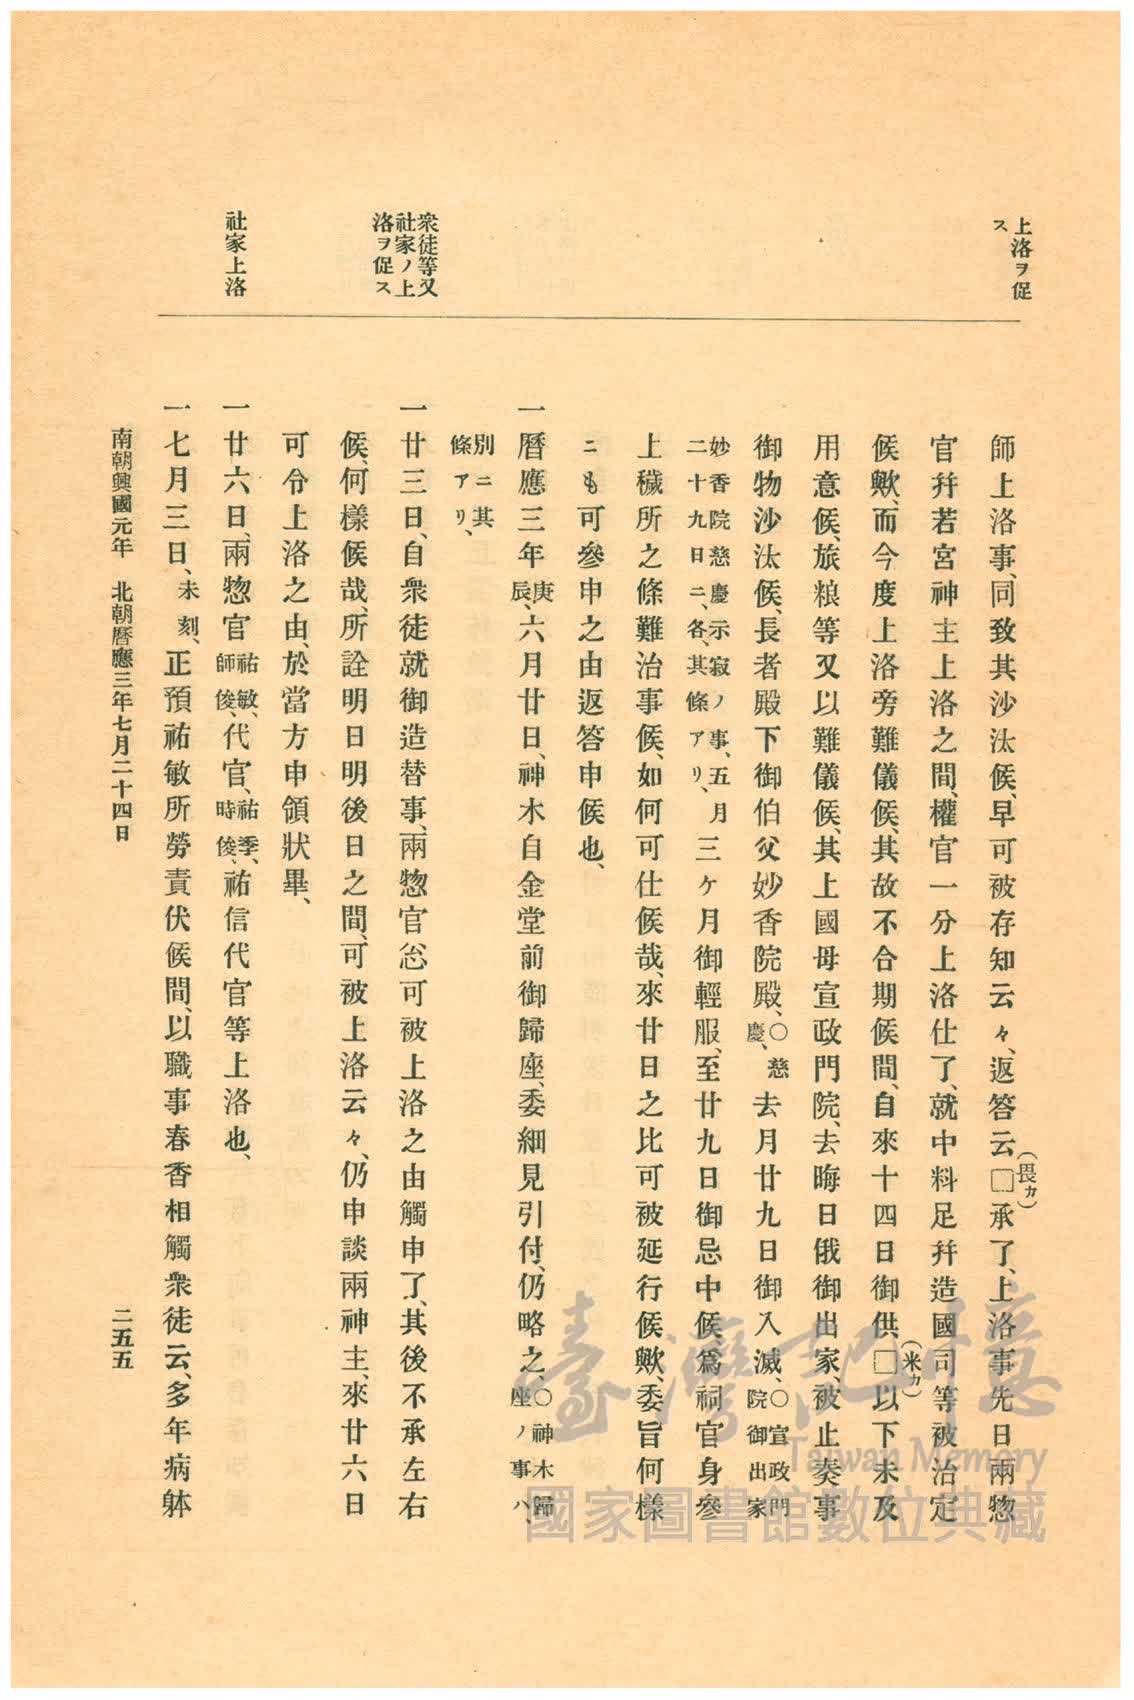 上洛ヲ促
ス
師上洛事、同致其沙汰候、早可被存知云々、返答云□(畏カ)承了、上洛事先日兩惣
官幷若宮神主上洛之間、權官一分上洛仕了、就中料足幷造國司等被治定
候歟、而今度上洛旁難儀候、其故不合期候間、自來十四日御供□(米カ)以下未及
用意候、旅粮等又以難儀候、其上國母宣政門院、去晦日俄御出家、被止奏事
御物沙汰候、長者殿下御伯父妙香院殿、○慈慶、去月廿九日御入滅、○宣政門院御出家
妙香院慈慶示寂ノ事、五月二十九日ニ、各、其條アリ、三ケ月御輕服、至廿九日御忌中候爲祠官身參
上穢所之條難治事候、如何可仕候哉、來廿日之比可被延行候歟、委旨何樣
ニも可參申之由返答申候也、
一曆應三年庚辰、六月廿日、神木自金堂前御歸座、委細見引付、仍略之、○神木歸座ノ事ハ、
別ニ其條アリ、
衆徒等又
社家ノ上
洛ヲ促ス
一廿三日、自衆徒就御造替事、兩惣官忩可被上洛之由觸申了、其後不承左右
候、何樣候哉、所詮明日明後日之間、可被上洛云々、仍申談兩神主、來廿六日
可令上洛之由、於當方申領狀畢、
社家上洛
一廿六日、兩惣官祐敏、師俊、代官、祐季、時俊、祐信代官等上洛也、
一七月三日、未刻、正預祐敏所勞責伏候間、以職事春香相觸衆徒云、多年病躰
南朝興國元年 北朝曆應三年七月二十四日
二五五
臺灣記憶
Taiwan Memory
國家圖書館數位典藏